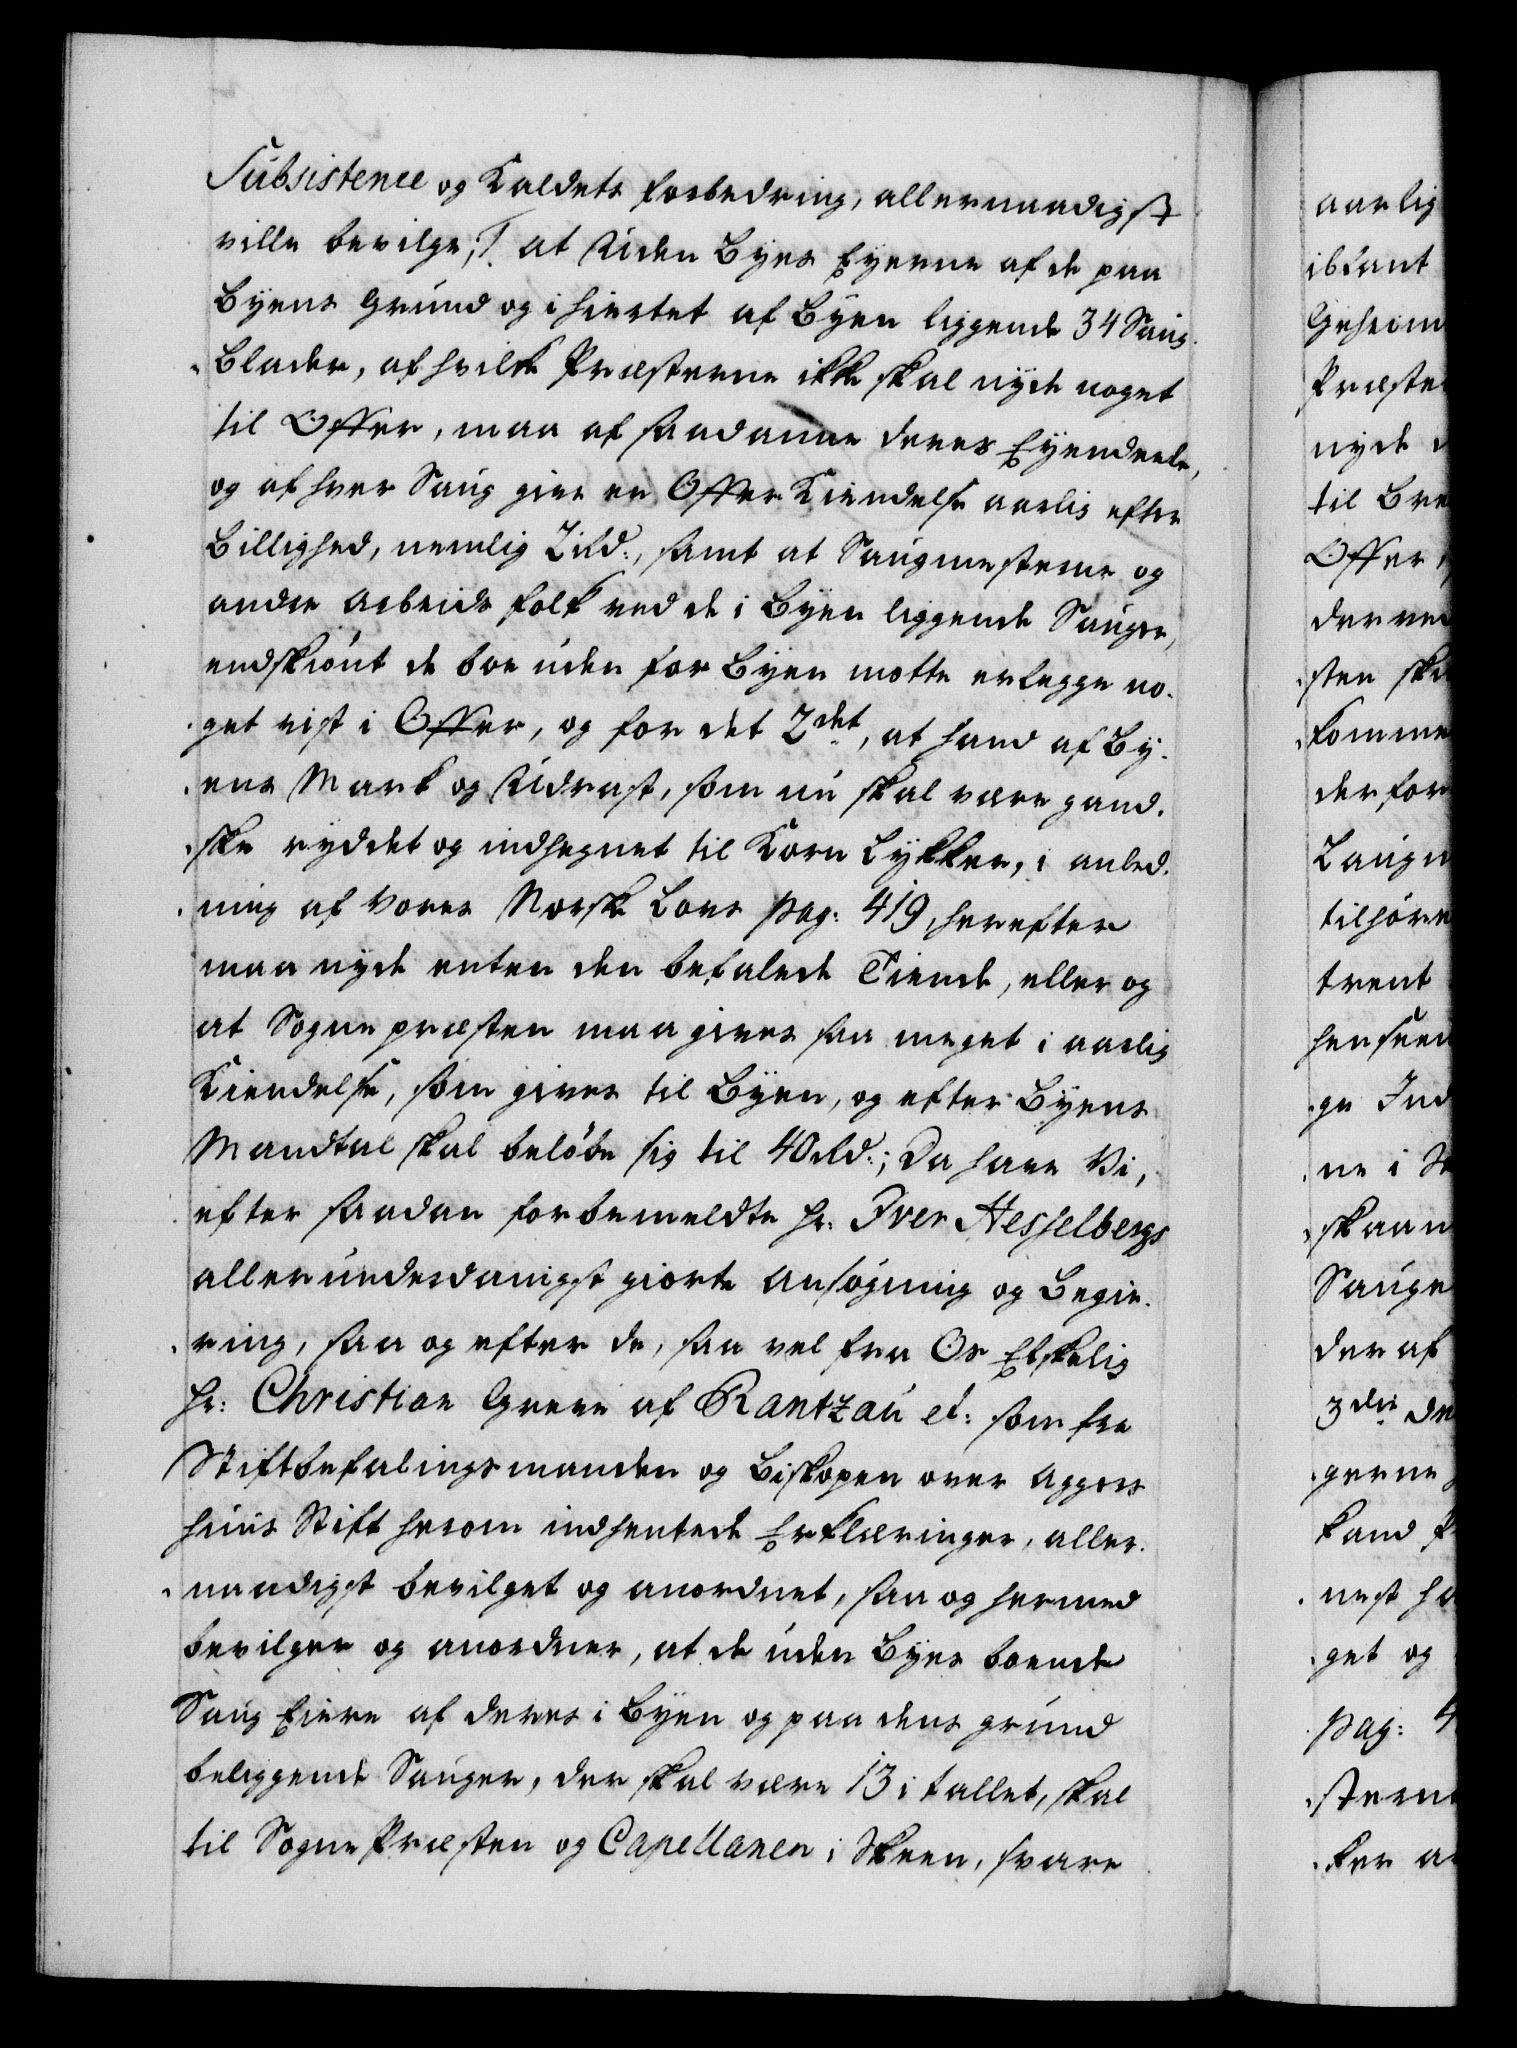 Subsistence og Kaldets forbedring, allernaadigst
ville bevilge, 1. at Uden Byes Eyerne af de paa
Byens Grund og i hiertet af Byen liggende 34 Saug-
Blader, af hvilke Præsterne ikke skal nyde noget
til Offer, maa af saadanne deres Eyendeele,
og af hver Saug give en Offer Kiendelse aarlig efter
Billighed, nemlig 2 rd:, samt at Saugmesterne og
andre Arbeids folk ved de i Byen liggende Sauger,
endskiönt de boe uden for Byen motte erlegge no-
get vist i Offer, og for det 2det, at hand af By-
ens Mark og Udrast, som nu skal være gand-
ske ryddet og indhegnet til Korn Lykker, i anled-
ning af Vores Norske Lovs pag: 419, herefter
maa nyde enten den befalede Tiende, eller og
at Sognepræsten maa gives saa meget i aarlig
Kiendelse, som gives til Byen, og efter Byens
Mandtal skal belöbe sig til 40 rd:; Da have Vi,
efter saadan forbemeldte Hr. Iver Hesselbergs
allerunderdanigst giorte Ansögning og Begie-
ring, saa og efter de, saa vel fra Os Elskelig
Hr: Christian Greve af Rantzau et: som fra
Stiftbefalingsmanden og Biskopen over Aggers
huus Stift herom indhentede Erklæringer, aller-
naadigst bevilget og anordnet, saa og hermed
bevilger og anordner, at de uden Byes boende
Saug Eiere af deres i Byen og paa dens grund
beliggende Sauger, der skal være 13 i tallet, skal
til Sogne Præsten og Capellanen i Skeen, svare
aarlig
Præste
nyde
til
Offer
sten
komme
der for
tilhöre
trent
ne i
Sauge
der af
3die
gerne
kand
nest
get og
pag: 4